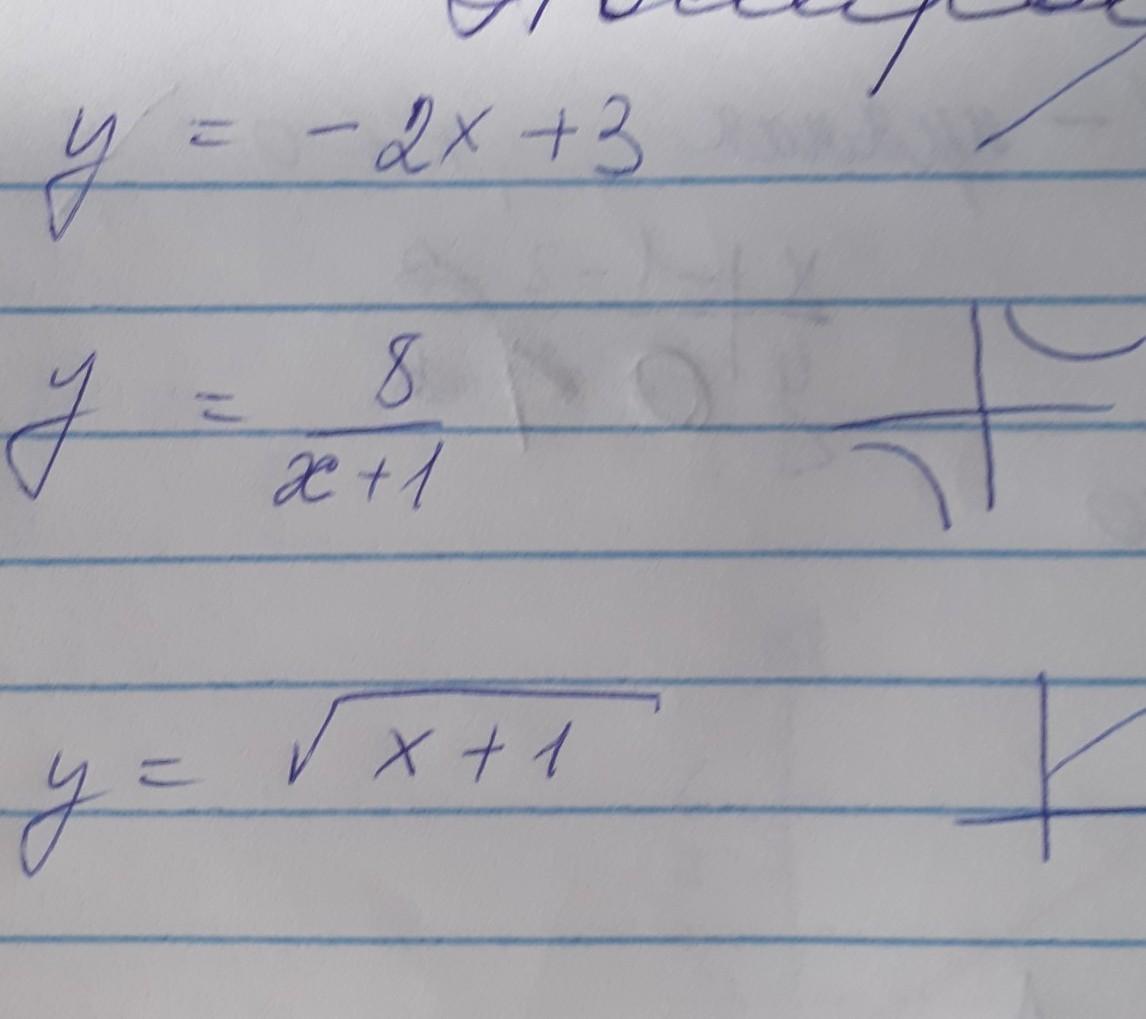 y = -2x + 3
y = 8/(x+1)
y = √(x+1)